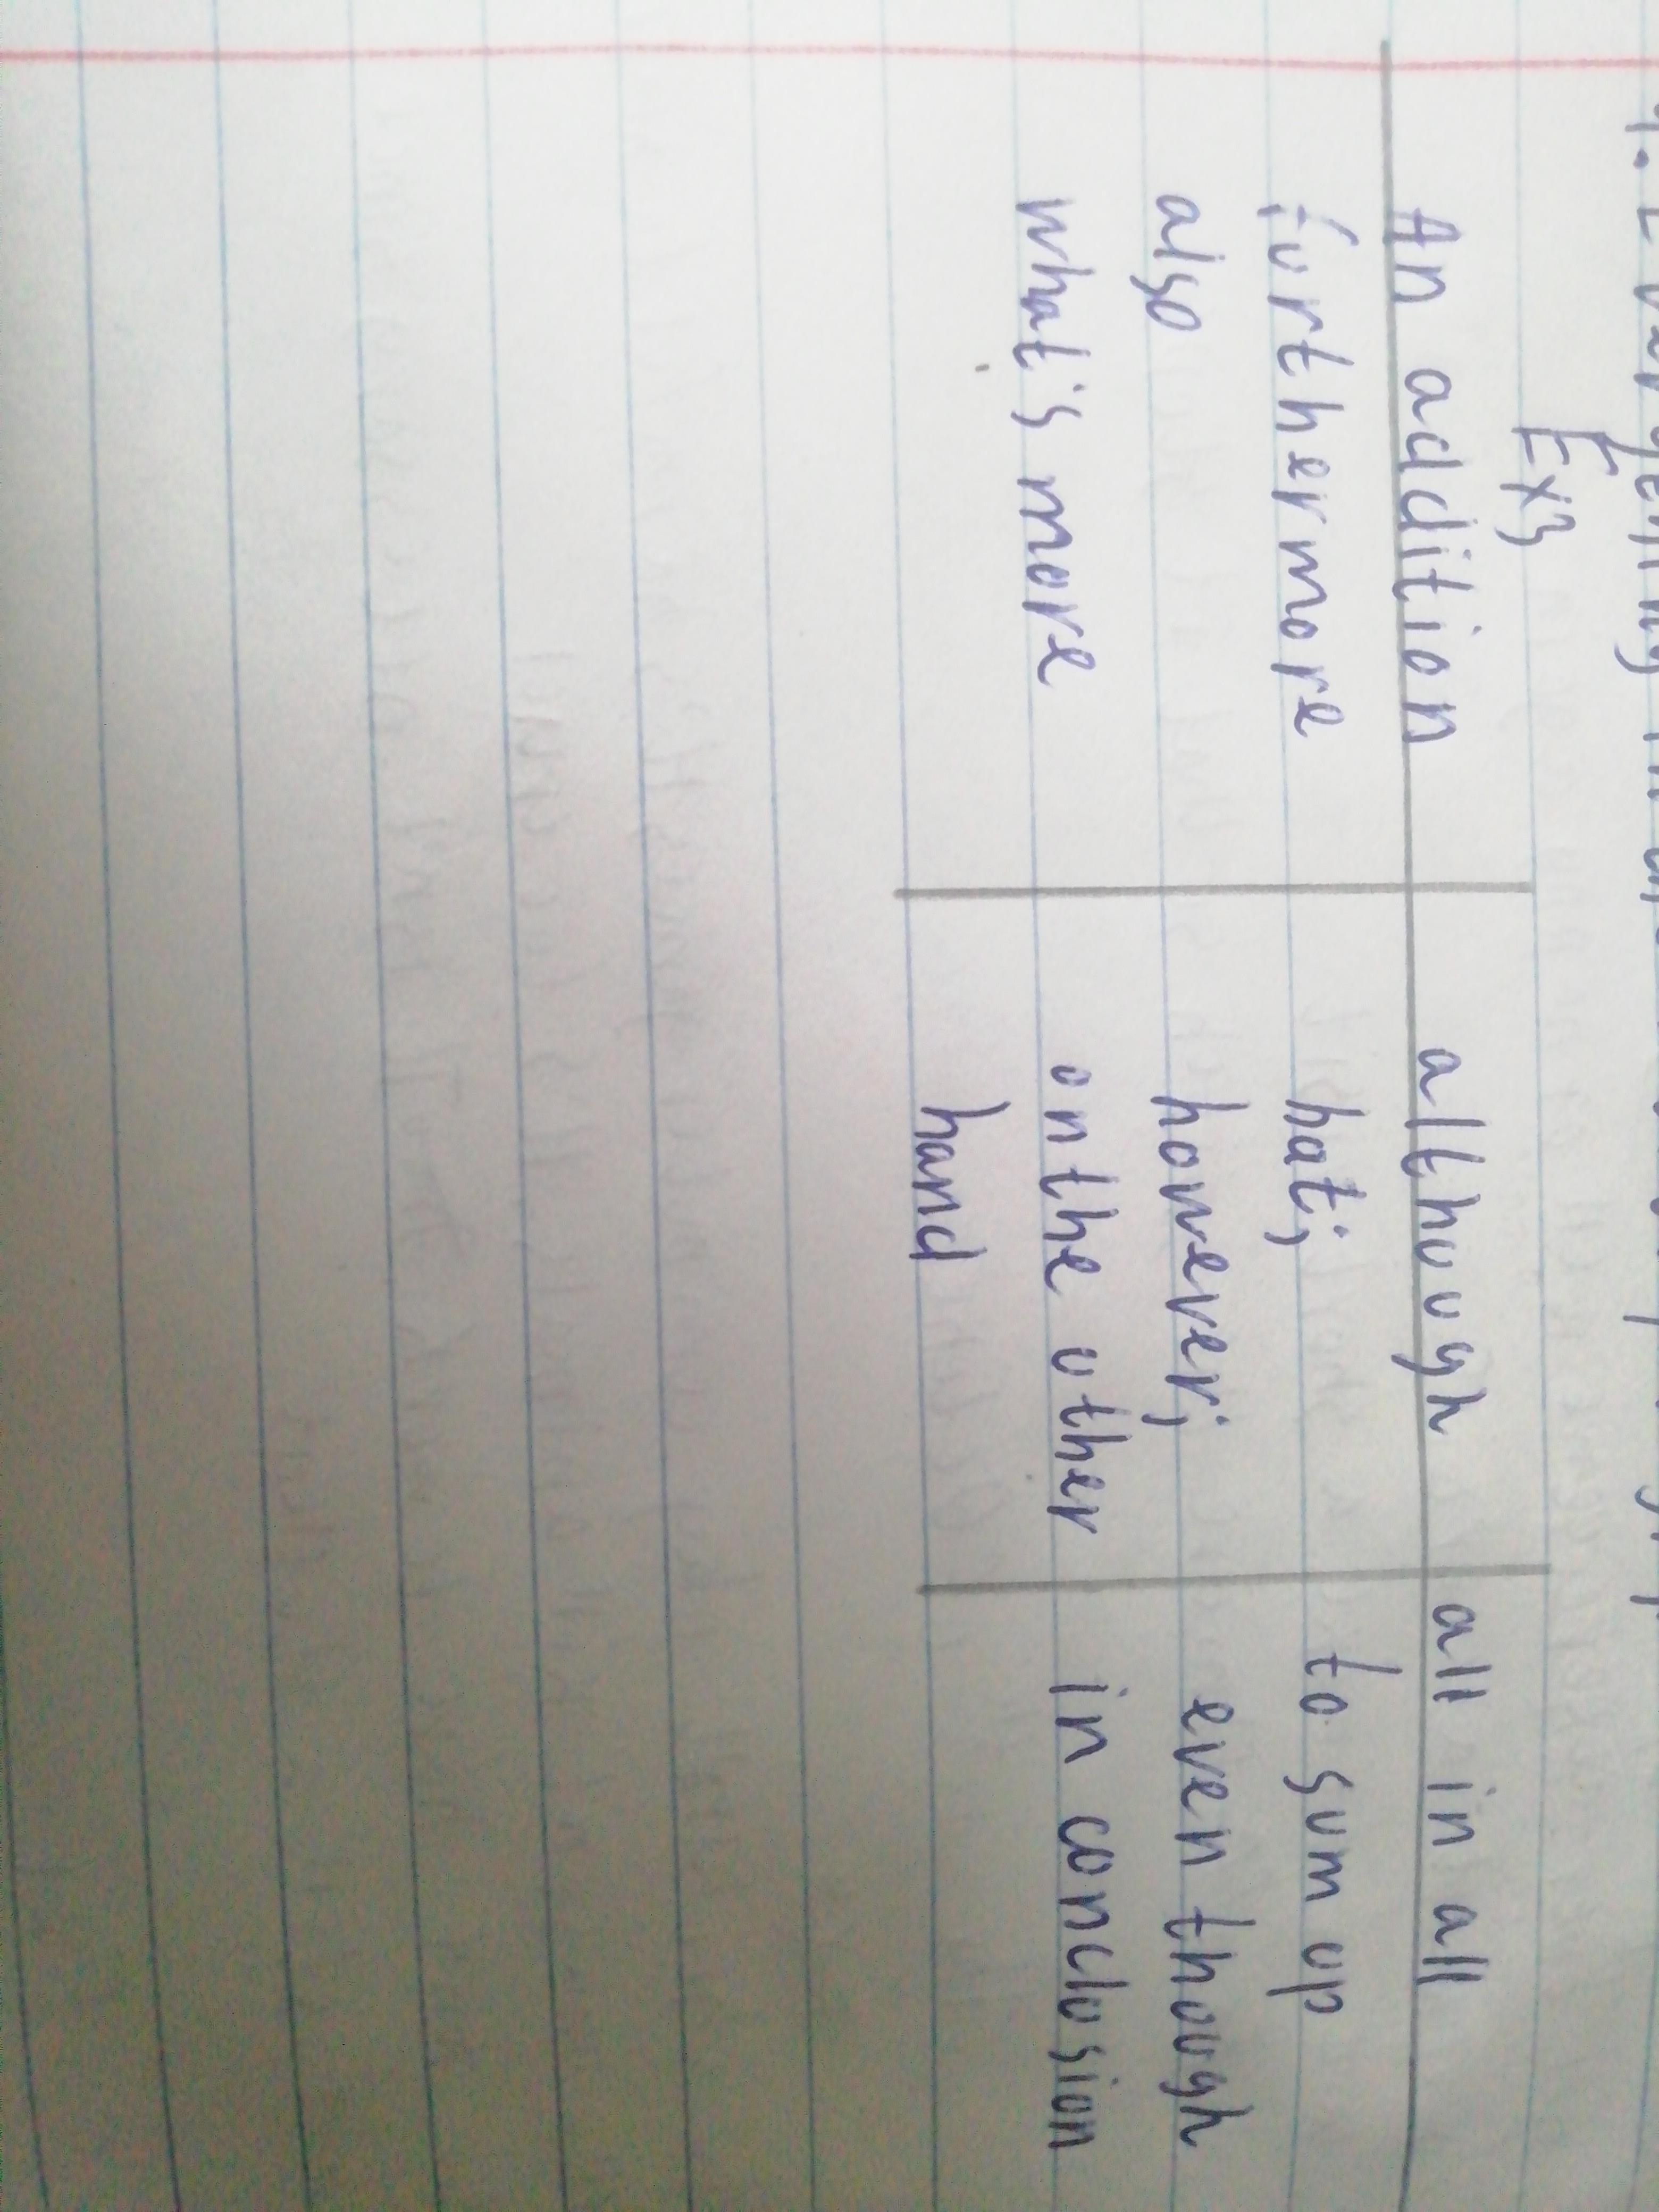 Ex3
An addition although all in all
furthermore bat; to sum up
also however; even though
what's more on the other in conclusion
hand